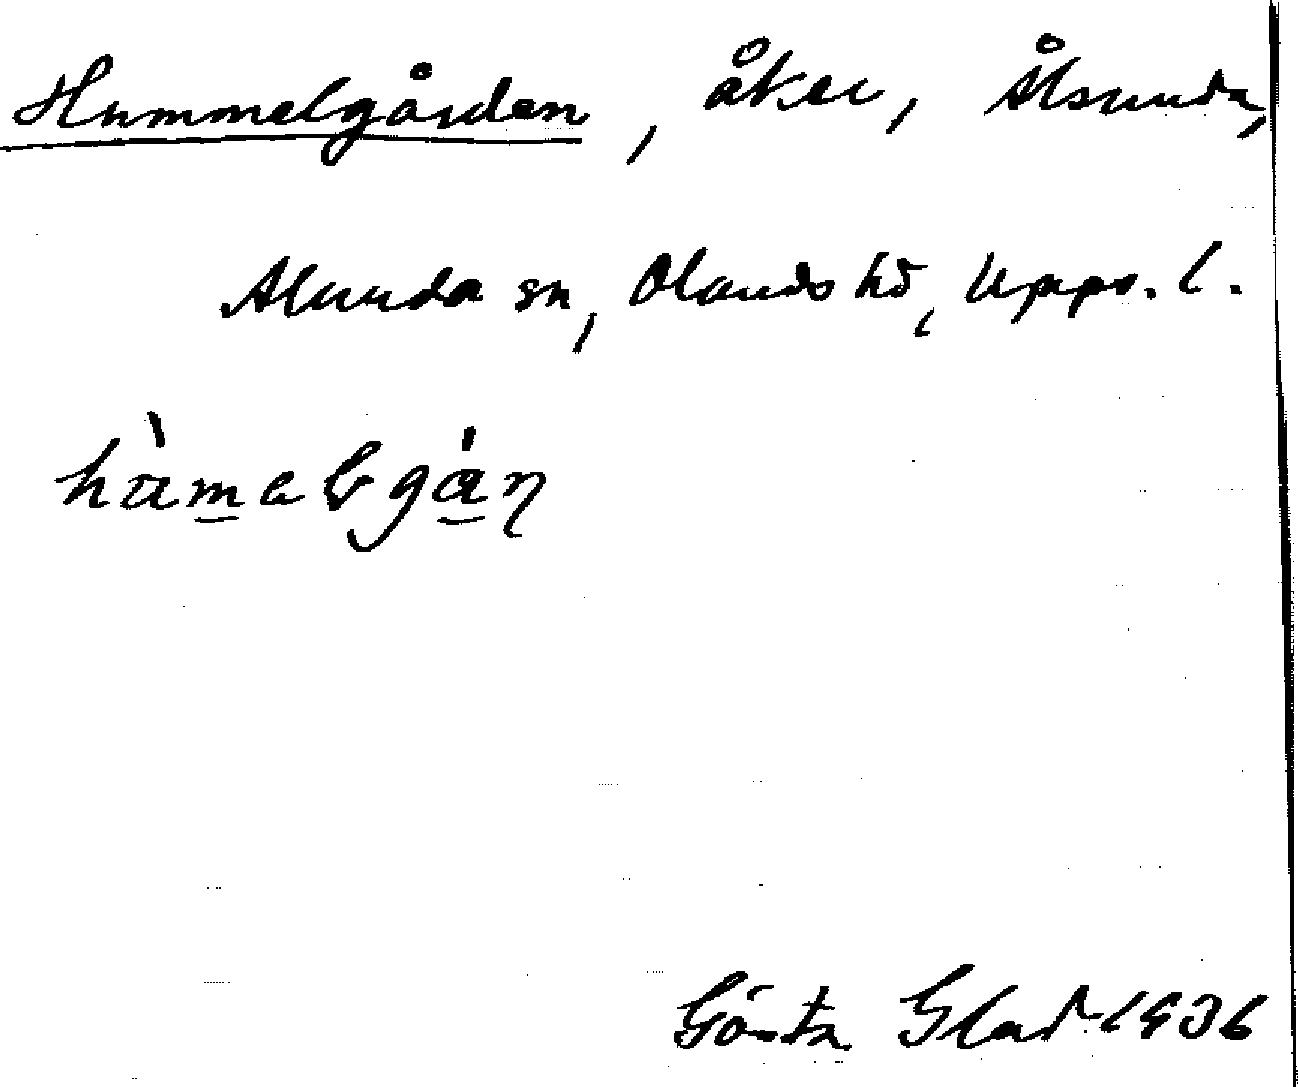 Hummelgården, åker, Ålsunda,
Alunda sn, Olands hd, Upps. l.
Gösta Glad 1936